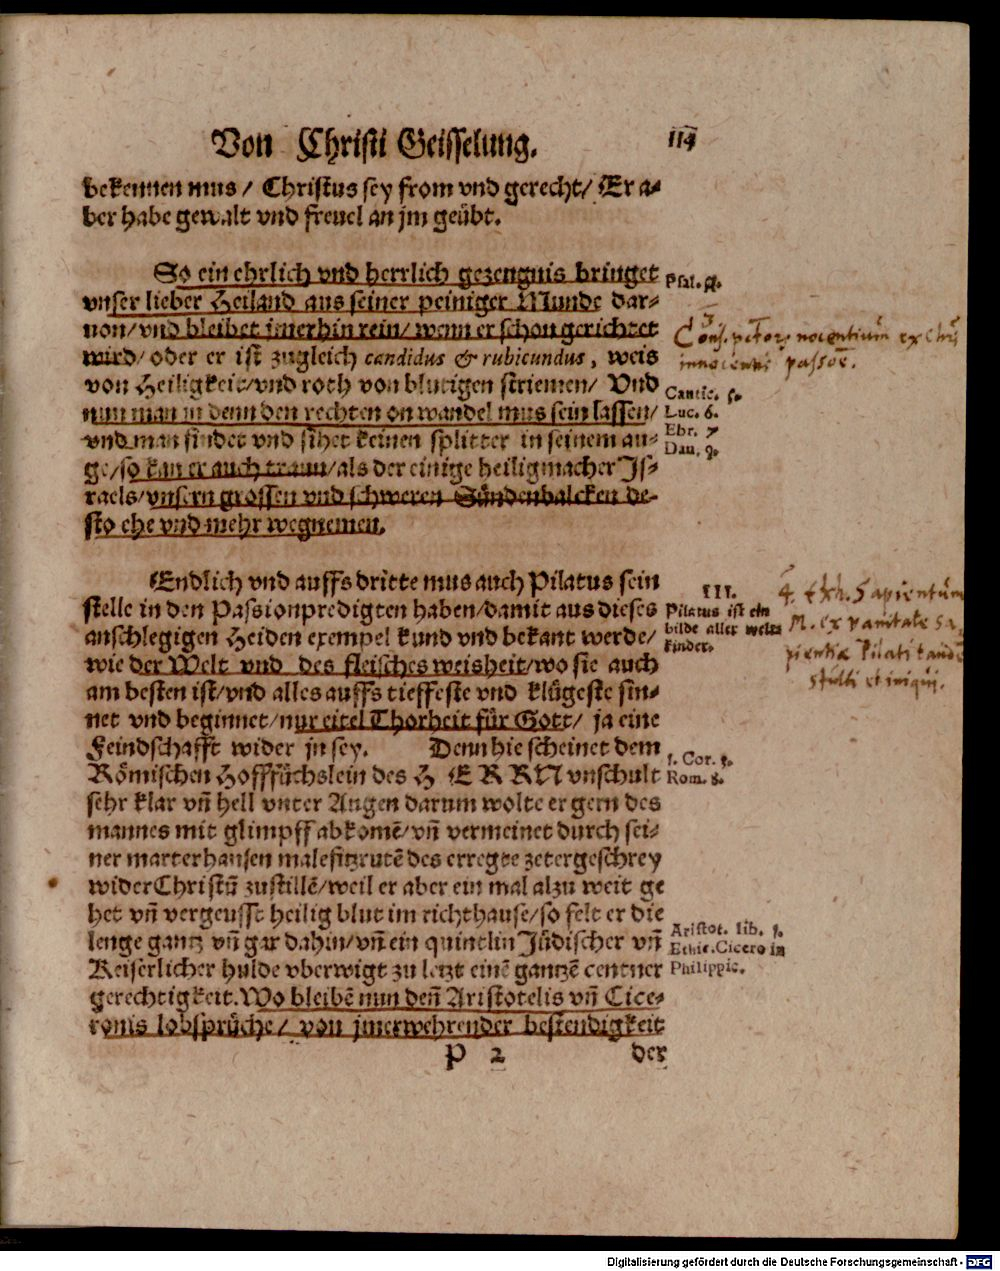 Von Christi Geisselung. 114
bekennen mus / Christus sey from vnd gerecht / Er a-
ber habe gewalt vnd freuel an jm geübt.
So ein ehrlich vnd herrlich gezeugnis bringet
vnser lieber Heiland aus seiner peiniger Munde dar-
uon / vnd bleibet imerhin rein / wenn er schon gerichtet
wird / oder er ist zugleich candidus & rubicundus, weis
von Heiligkeit / vnd roth von blutigen striemen / Vnd
nun man in denn den rechten on wandel mus sein lassen /
vnd man findet vnd sihet keinen splitter in seinem au-
ge / so kan er auch traun / als der einige heiligmacher Js-
raels / vnsern grossen vnd schweren Sündenbalcken de-
sto ehe vnd mehr wegnemen.
Psal. 51.
3
Cons. nocentium ex Chri
innocentis passoe.
Cantic. 5.
Luc. 6.
Ebr. 7
Dan. 9.
Endlich vnd auffs dritte mus auch Pilatus sein
stelle in den Passionpredigten haben / damit aus dieses
anschlegigen Heiden exempel kund vnd bekant werde /
wie der Welt vnd des fleisches weisheit / wo sie auch
am besten ist / vnd alles auffs tieffeste vnd klügeste sin-
net vnd beginnet / nur eitel Thorheit für Gott / ja eine
Feindschafft wider jn sey. Denn hie scheinet dem
Römischen Hofffüchslein des HERRN vnschult
sehr klar vn̄ hell vnter Augen darum wolte er gern des
mannes mit glimpff abkomē / vn̄ vermeinet durch sei-
ner marterhansen malefitzrutē des erregte zetergeschrey
wider Christū zustillē / weil er aber ein mal alzu weit ge
het vn̄ vergeusst heilig blut im richthause / so felt er die
lenge gantz vn̄ gar dahin / vn̄ ein quintlin Jüdischer vn̄
Keiserlicher hulde vberwigt zu letzt einē gantzē centner
gerechtigkeit. Wo bleibē nun den̄ Aristotelis vn̄ Cice-
ronis lobsprüche / von jmerwehrender bestendigkeit
III.
Pilatus ist ein
bilde aller welt
kinder.
4. Exh. Sapientum
M. ex vanitate Sa
pientiæ Pilati tandē
stulti et iniqui.
1. Cor. 1.
Rom. 8.
Aristot. lib. 1.
Ethic. Cicero in
Philippic.
P 2 der
Digitalisierung gefördert durch die Deutsche Forschungsgemeinschaft - DFG